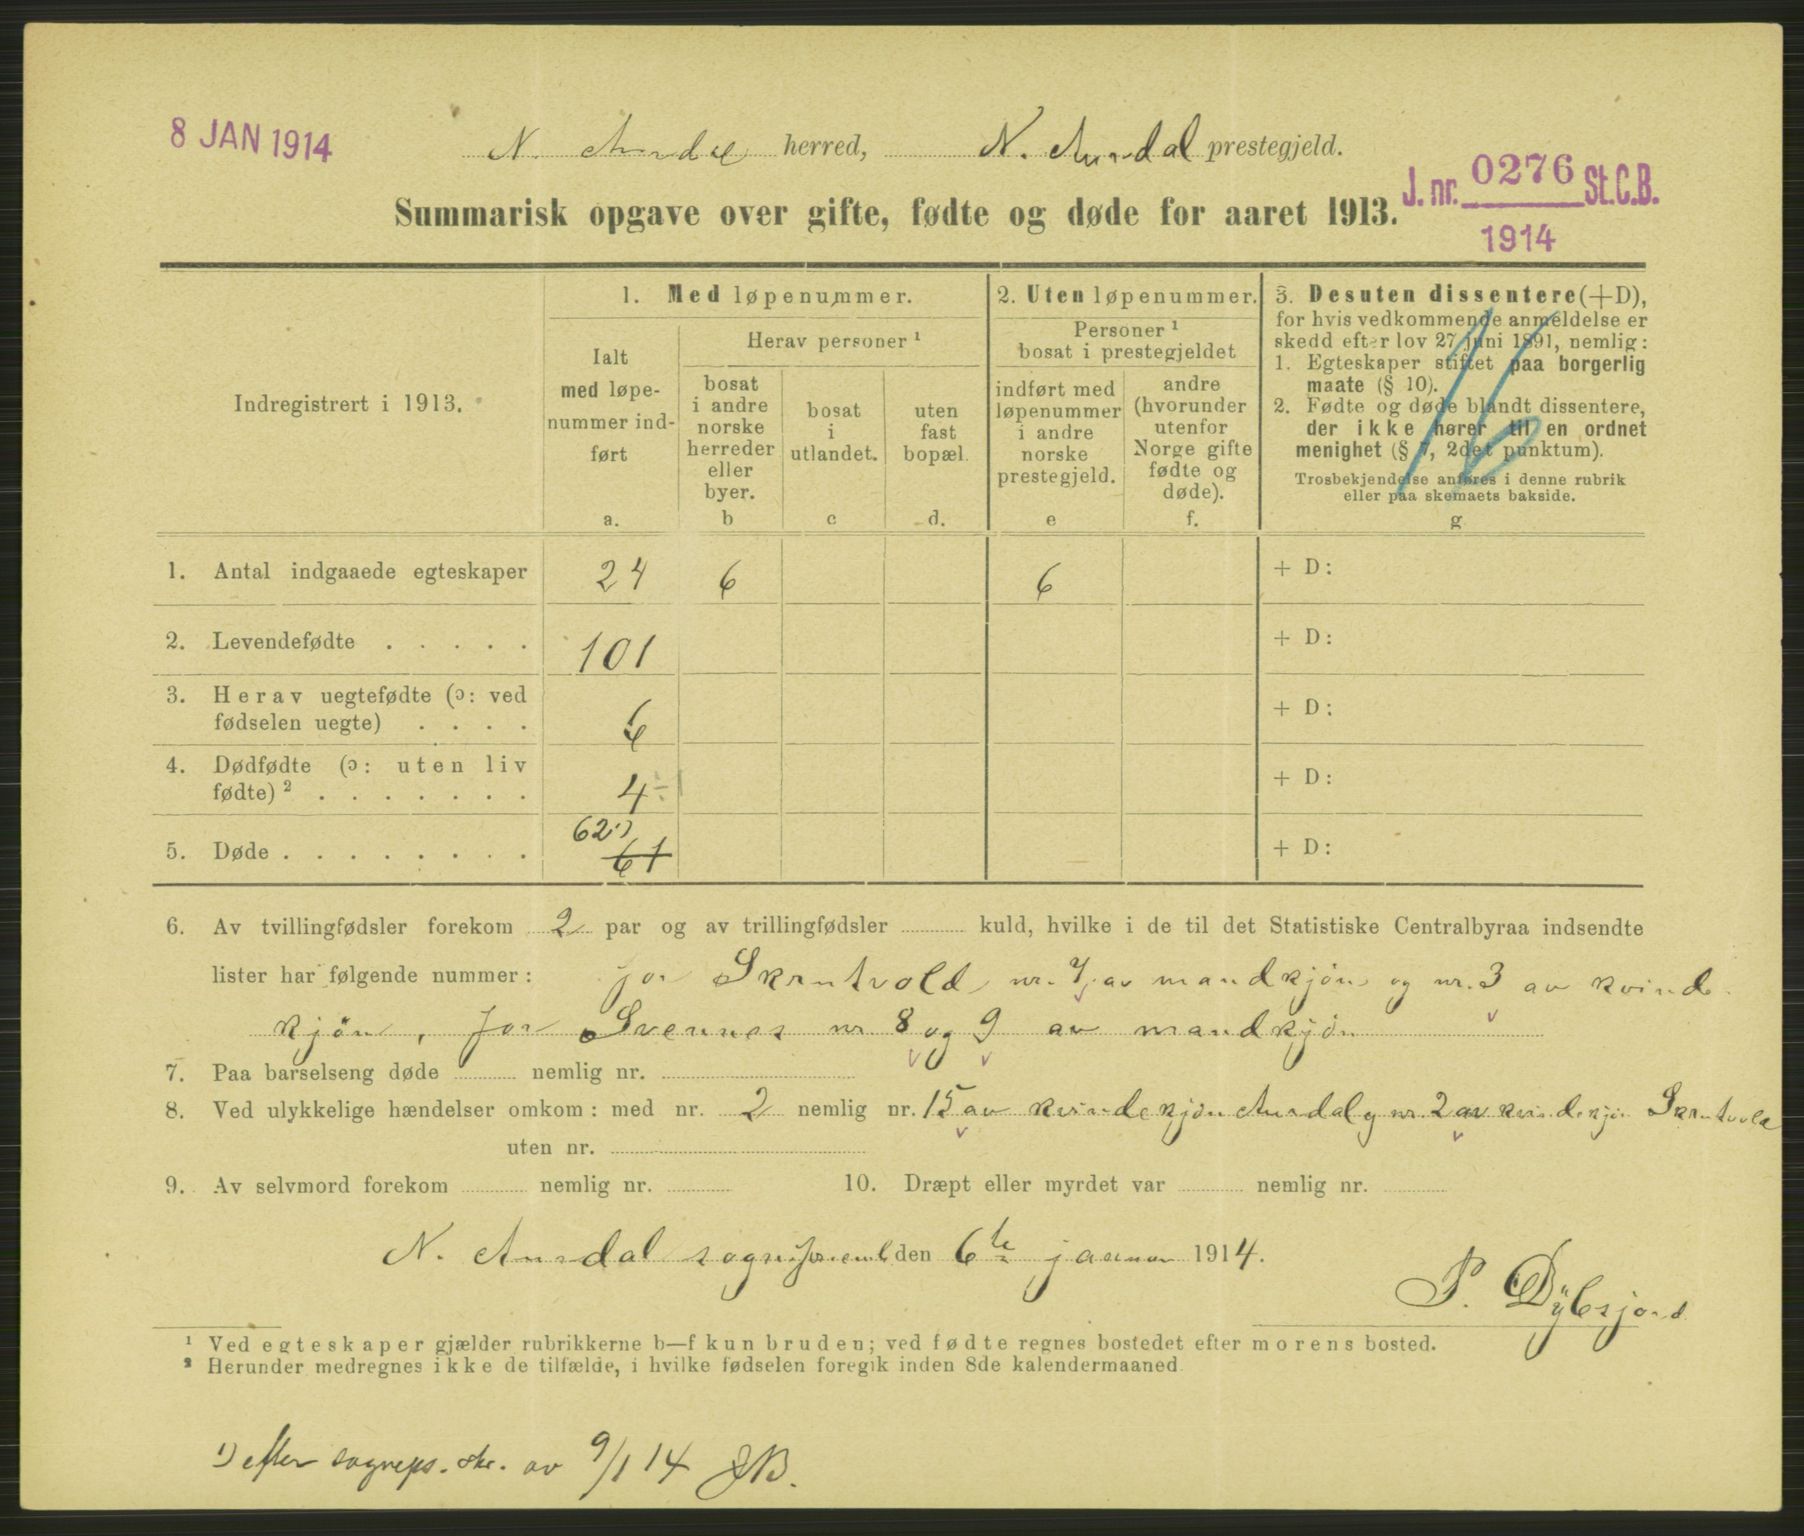 8 JAN 1914
N. Aurdal herred, N. Aurdal prestegjeld.
J. nr. 0276 St.C.B.
1914
Summarisk opgave over gifte, fødte og døde for aaret 1913.
Indregistrert i 1913.
1. Med løpenummer.
Ialt
med løpe-
nummer ind-
ført
a.
Herav personer ¹
bosat
i andre
norske
herreder
eller
byer.
b
bosat
i
utlandet.
c
uten
fast
bopæl.
d.
2. Uten løpenummer.
Personer ¹
bosat i prestegjeldet
indført med
løpenummer
i andre
norske
prestegjeld.
e
andre
(hvorunder
utenfor
Norge gifte
fødte og
døde).
f.
3. Desuten dissentere (+D),
for hvis vedkommende anmeldelse er
skedd efter lov 27 juni 1891, nemlig:
1. Egteskaper stiftet paa borgerlig
maate (§ 10).
2. Fødte og døde blandt dissentere,
der ikke hører til en ordnet
menighet (§ 7, 2det punktum).
Trosbekjendelse anføres i denne rubrik
eller paa skemaets bakside.
g
16
1. Antal indgaaede egteskaper 24 6 6 + D:
2. Levendefødte . . . . . 101 + D:
3. Herav uegtefødte (ɔ: ved
fødselen uegte) . . . . 6 + D:
4. Dødfødte (ɔ: uten liv
fødte) ² . . . . . . . 4 ÷ 1 + D:
62 ¹)
5. Døde . . . . . . . . 61 + D:
6. Av tvillingfødsler forekom 2 par og av trillingfødsler kuld, hvilke i de til det Statistiske Centralbyraa indsendte
lister har følgende nummer: for Skrutvold nr. 7 av mandkjøn og nr. 3 av kvind-
kjøn, for Svennes nr 8 og 9 av mandkjøn
7. Paa barselseng døde nemlig nr.
8. Ved ulykkelige hændelser omkom: med nr. 2 nemlig nr. 15 av kvindekjøn Aurdal og nr. 2 av kvindekjøn Skrutvold
uten nr.
9. Av selvmord forekom nemlig nr. 10. Dræpt eller myrdet var nemlig nr.
N. Aurdal sogneprestembede den 6te januar 1914.
¹ Ved egteskaper gjælder rubrikkerne b—f kun bruden; ved fødte regnes bostedet efter morens bosted.
² Herunder medregnes ikke de tilfælde, i hvilke fødselen foregik inden 8de kalendermaaned
¹) efter sogneps. skr. av 9/1 14